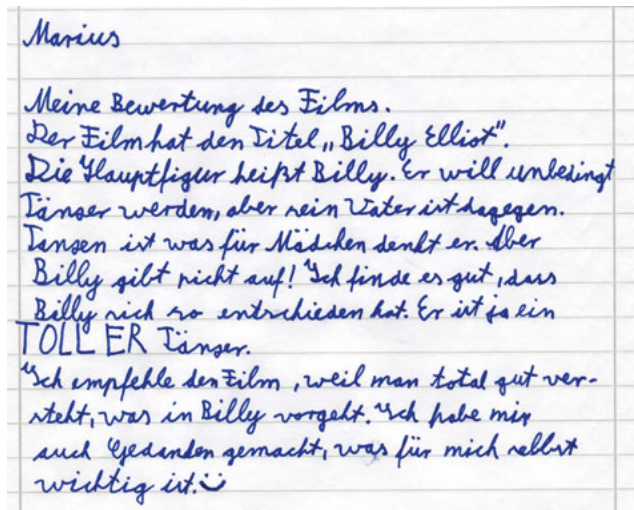 Marius
Meine Bewertung des Films.
Der Film hat den Titel „Billy Elliot".
Die Hauptfigur heißt Billy. Er will unbedingt
Tänzer werden, aber sein Vater ist dagegen.
Tanzen ist was für Mädchen denkt er. Aber
Billy gibt nicht auf! Ich finde es gut, dass
Billy sich so entschieden hat. Er ist ja ein
TOLLER Tänzer.
Ich empfehle den Film, weil man total gut ver-
steht, was in Billy vorgeht. Ich habe mir
auch Gedanken gemacht, was für mich selbst
wichtig ist.